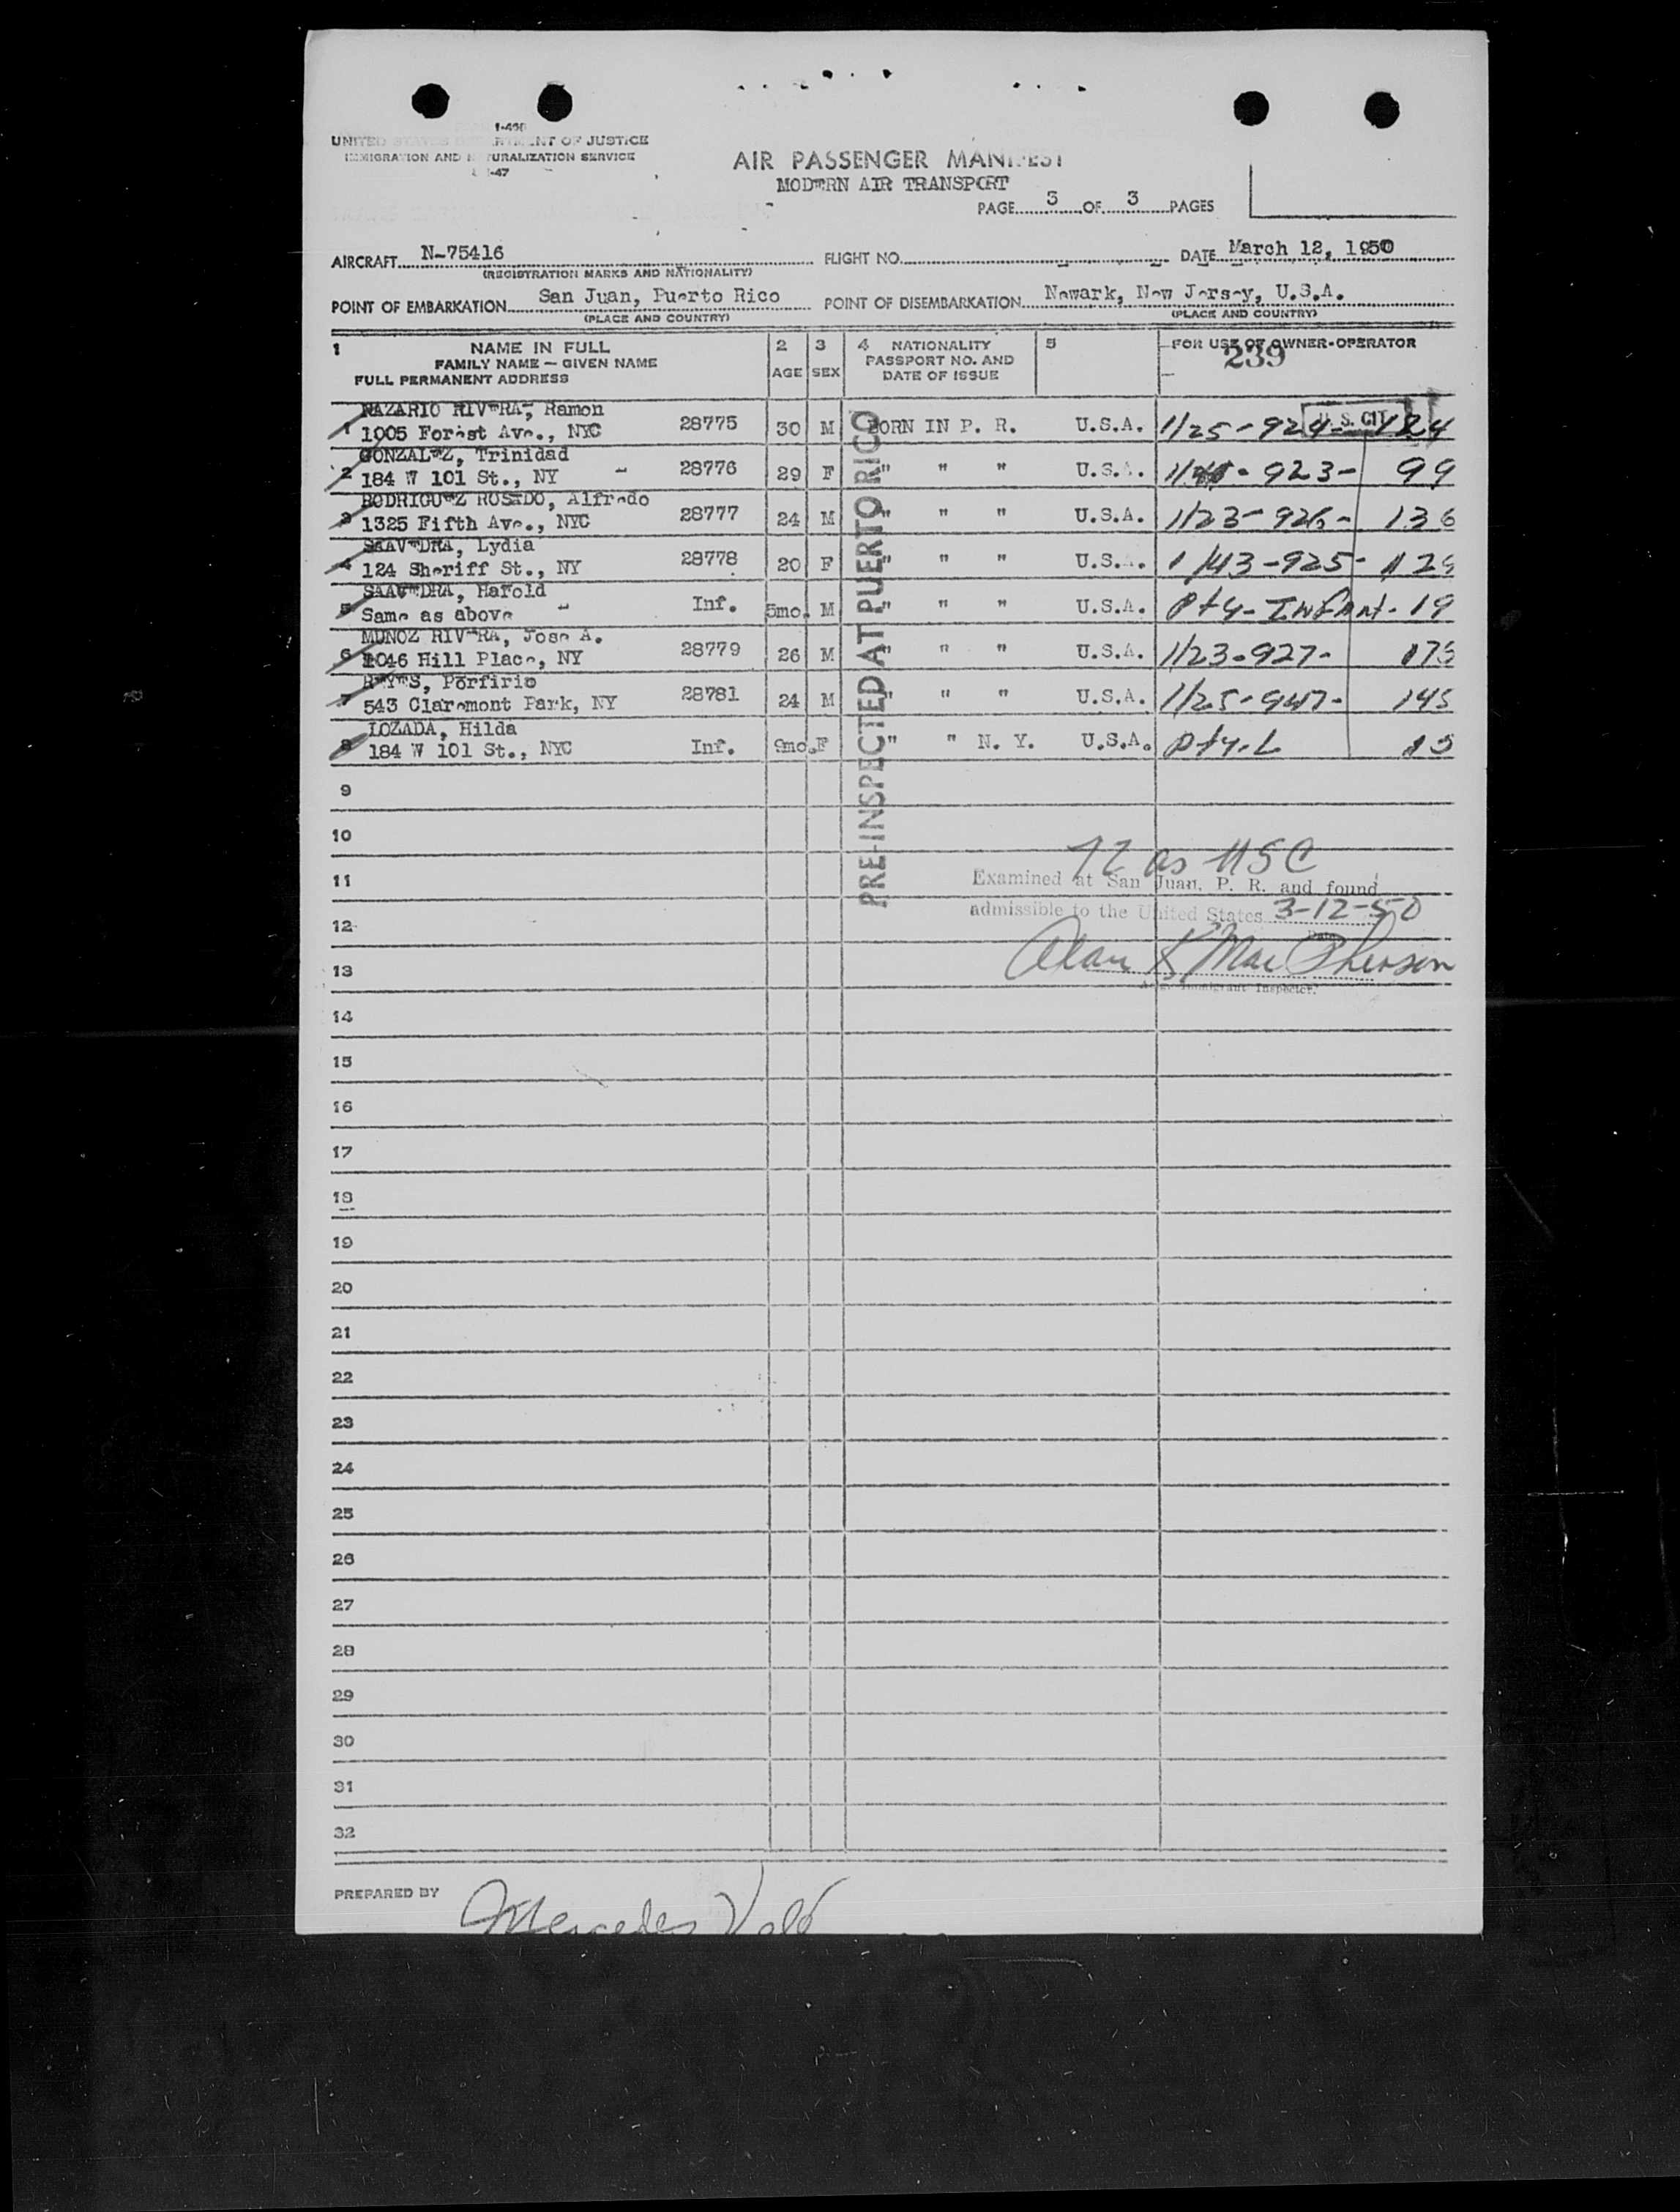 I-466
UNITED STATES DEPARTMENT OF JUSTICE
IMMIGRATION AND NATURALIZATION SERVICE
-47
AIR PASSENGER MANIFEST
MODERN AIR TRANSPORT
PAGE 3 OF 3 PAGES
AIRCRAFT N-75416 FLIGHT NO. DATE March 12, 1950
(REGISTRATION MARKS AND NATIONALITY)
POINT OF EMBARKATION San Juan, Puerto Rico POINT OF DISEMBARKATION Newark, New Jersey, U.S.A.
(PLACE AND COUNTRY) (PLACE AND COUNTRY)
1 NAME IN FULL 2 3 4 NATIONALITY 5 FOR USE OF OWNER-OPERATOR
FAMILY NAME — GIVEN NAME AGE SEX PASSPORT NO. AND 239
FULL PERMANENT ADDRESS DATE OF ISSUE
PRE-INSPECTED AT PUERTO RICO
U. S. CIT
NAZARIO RIVERA, Ramon
1 1005 Forest Ave., NYC 28775 30 M BORN IN P. R. U.S.A. 1/25-924- 124
GONZALEZ, Trinidad
2 184 W 101 St., NY 28776 29 F " " " U.S.A. - 923- 99
RODRIGUEZ ROSADO, Alfredo
3 1325 Fifth Ave., NYC 28777 24 M " " " U.S.A. 1/23-926- 136
SAAVEDRA, Lydia
4 124 Sheriff St., NY 28778 20 F " " " U.S.A. 1/43-925-
SAAVEDRA, Harold
5 Same as above Inf. 5mo. M " " " U.S.A. Pty-Infant-19
MUNOZ RIVERA, Jose A.
6 1046 Hill Place, NY 28779 26 M " " " U.S.A. 1/23-927-
REYES, Porfirio
7 543 Claremont Park, NY 28781 24 M " " " U.S.A. 1/25-947- 145
LOZADA, Hilda
8 184 W 101 St., NYC Inf. 9mo. F " " N. Y. U.S.A.
9
10
72 as USC
11 Examined at San Juan, P. R. and found
admissible to the United States 3-12-50
12 Date
Alan K MacPherson
13
Immigrant Inspector.
14
15
16
17
18
19
20
21
22
23
24
25
26
27
28
29
30
31
32
PREPARED BY Mercedes